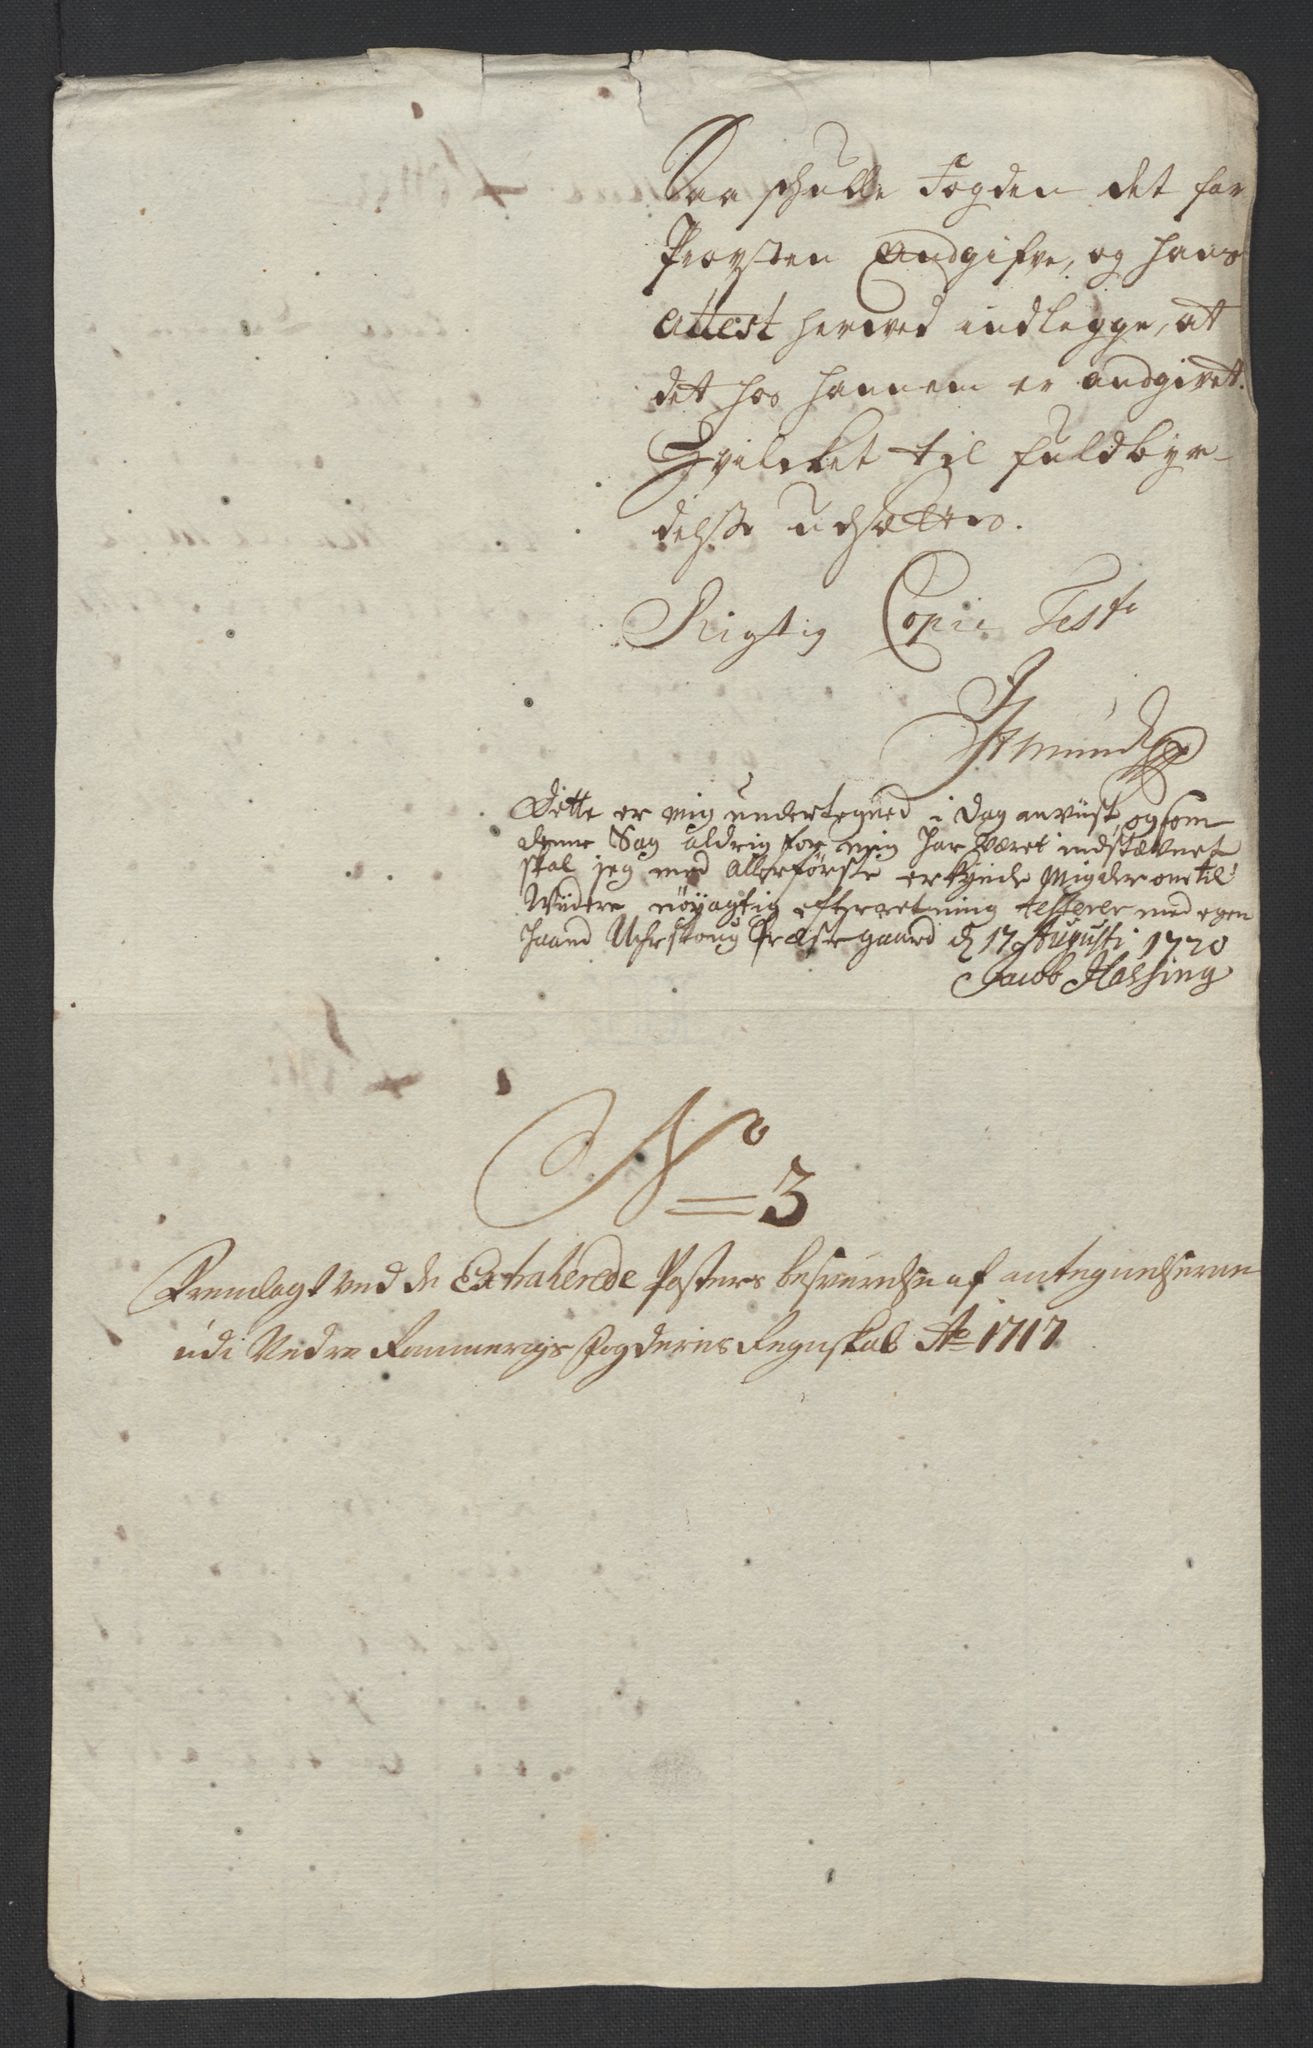 Saa schulle Fogden det for
Provsten Andgifve, og hans
Attest herved indlegge, at
det hos hannem er andgivet.
Hvilcket til fuldbyr-
delsse udsættes.
Rigtig Copie Test
Dette er mig undertegned i Dag anviist, og som
denne Sag aldrig for mig har været indstævnet
skal jeg med Allerførste erkynde Mig der om til
Widere nøyagtig efterretning testerer med egen
haand Præstegaard d 17 Augusti 1720
Jacob Hassing
No 3
Fremlagt ved de Extraherede Posters besvarelse af antegnelserne
udi Nedre Rommerigs Fogderies Regnskab Ao 1717